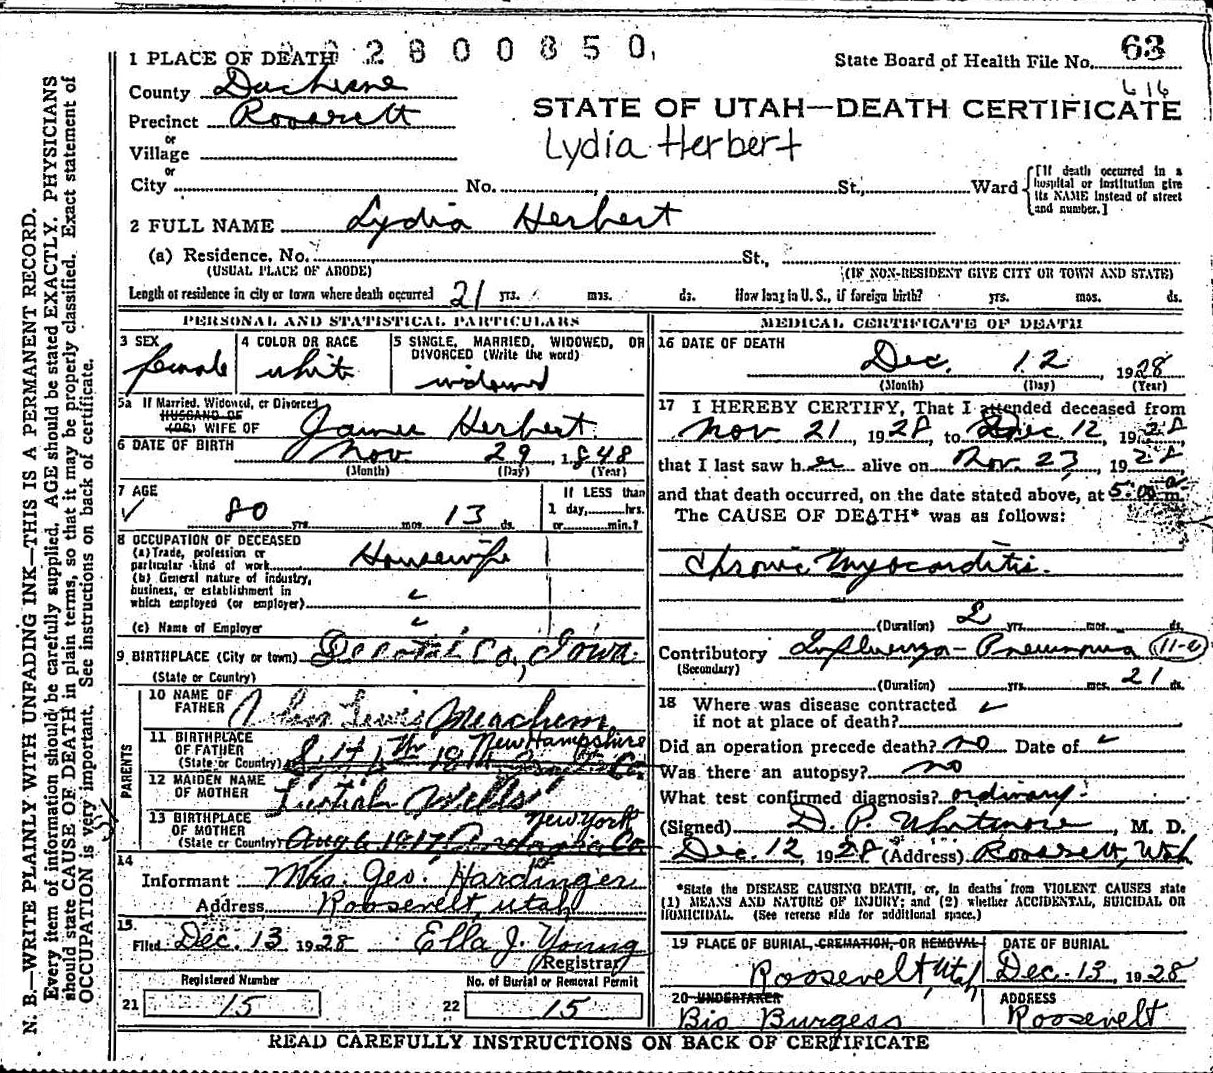 2800850
1 PLACE OF DEATH
State Board of Health File No. 63
616
County Duchesne
STATE OF UTAH—DEATH CERTIFICATE
Precinct Roosevelt
Lydia Herbert
or
Village
or
City No. St., Ward
[If death occurred in a
hospital or institution give
its NAME instead of street
and number.]
2 FULL NAME Lydia Herbert
(a) Residence. No. St.,
(USUAL PLACE OF ABODE) (IF NON-RESIDENT GIVE CITY OR TOWN AND STATE)
Length of residence in city or town where death occurred 21 yrs. mos. ds. How long in U. S., if foreign birth? yrs. mos. ds.
PERSONAL AND STATISTICAL PARTICULARS
3 SEX
female
4 COLOR OR RACE
white
5 SINGLE, MARRIED, WIDOWED, OR
DIVORCED (Write the word)
widowed
5a If Married, Widowed, or Divorced
HUSBAND OF
(OR) WIFE OF James Herbert
6 DATE OF BIRTH Nov 29 1848
(Month) (Day) (Year)
7 AGE
80 yrs. mos. 13 ds.
If LESS than
1 day, hrs.
or min.?
8 OCCUPATION OF DECEASED
(a) Trade, profession or
particular kind of work Housewife
(b) General nature of industry,
business, or establishment in
which employed (or employer)
(c) Name of Employer
9 BIRTHPLACE (City or town) Co, Iowa
(State or Country)
PARENTS
10 NAME OF
FATHER John Lewis Meachem
11 BIRTHPLACE
OF FATHER New Hampshire
(State or Country)
12 MAIDEN NAME
OF MOTHER Wells
13 BIRTHPLACE
OF MOTHER New York
(State or Country) Aug 6 1817 Co.
14
Informant Mrs. Geo. Hardinger
Address Roosevelt, Utah
15
Filed Dec. 13 1928 Ella J. Young
Registrar
Registered Number
No. of Burial or Removal Permit
21 15
22 15
MEDICAL CERTIFICATE OF DEATH
16 DATE OF DEATH
Dec. 12 1928
(Month) (Day) (Year)
17 I HEREBY CERTIFY, That I attended deceased from
Nov 21, 1928, to Dec. 12, 1928,
that I last saw her alive on Nov. 23, 1928,
and that death occurred, on the date stated above, at 5:00 a m.
The CAUSE OF DEATH* was as follows:
Chronic Myocarditis.
(Duration) 2 yrs. mos. ds.
Contributory Influenza - Pneumonia 11-a
(Secondary)
(Duration) yrs. mos. 21 ds.
18 Where was disease contracted
if not at place of death?
Did an operation precede death? no Date of
Was there an autopsy? no
What test confirmed diagnosis? ordinary.
(Signed) D. P. Whitmore, M. D.
Dec. 12, 1928 (Address) Roosevelt, Utah
*State the DISEASE CAUSING DEATH, or, in deaths from VIOLENT CAUSES state
(1) MEANS AND NATURE OF INJURY; and (2) whether ACCIDENTAL, SUICIDAL OR
HOMICIDAL. (See reverse side for additional space.)
19 PLACE OF BURIAL, CREMATION, OR REMOVAL
Roosevelt, Utah
DATE OF BURIAL
Dec. 13, 1928
20 UNDERTAKER
Bio Burgess
ADDRESS
Roosevelt
READ CAREFULLY INSTRUCTIONS ON BACK OF CERTIFICATE
N. B.—WRITE PLAINLY WITH UNFADING INK—THIS IS A PERMANENT RECORD.
Every item of information should be carefully supplied. AGE should be stated EXACTLY. PHYSICIANS
should state CAUSE OF DEATH in plain terms, so that it may be properly classified. Exact statement of
OCCUPATION is very important. See instructions on back of certificate.